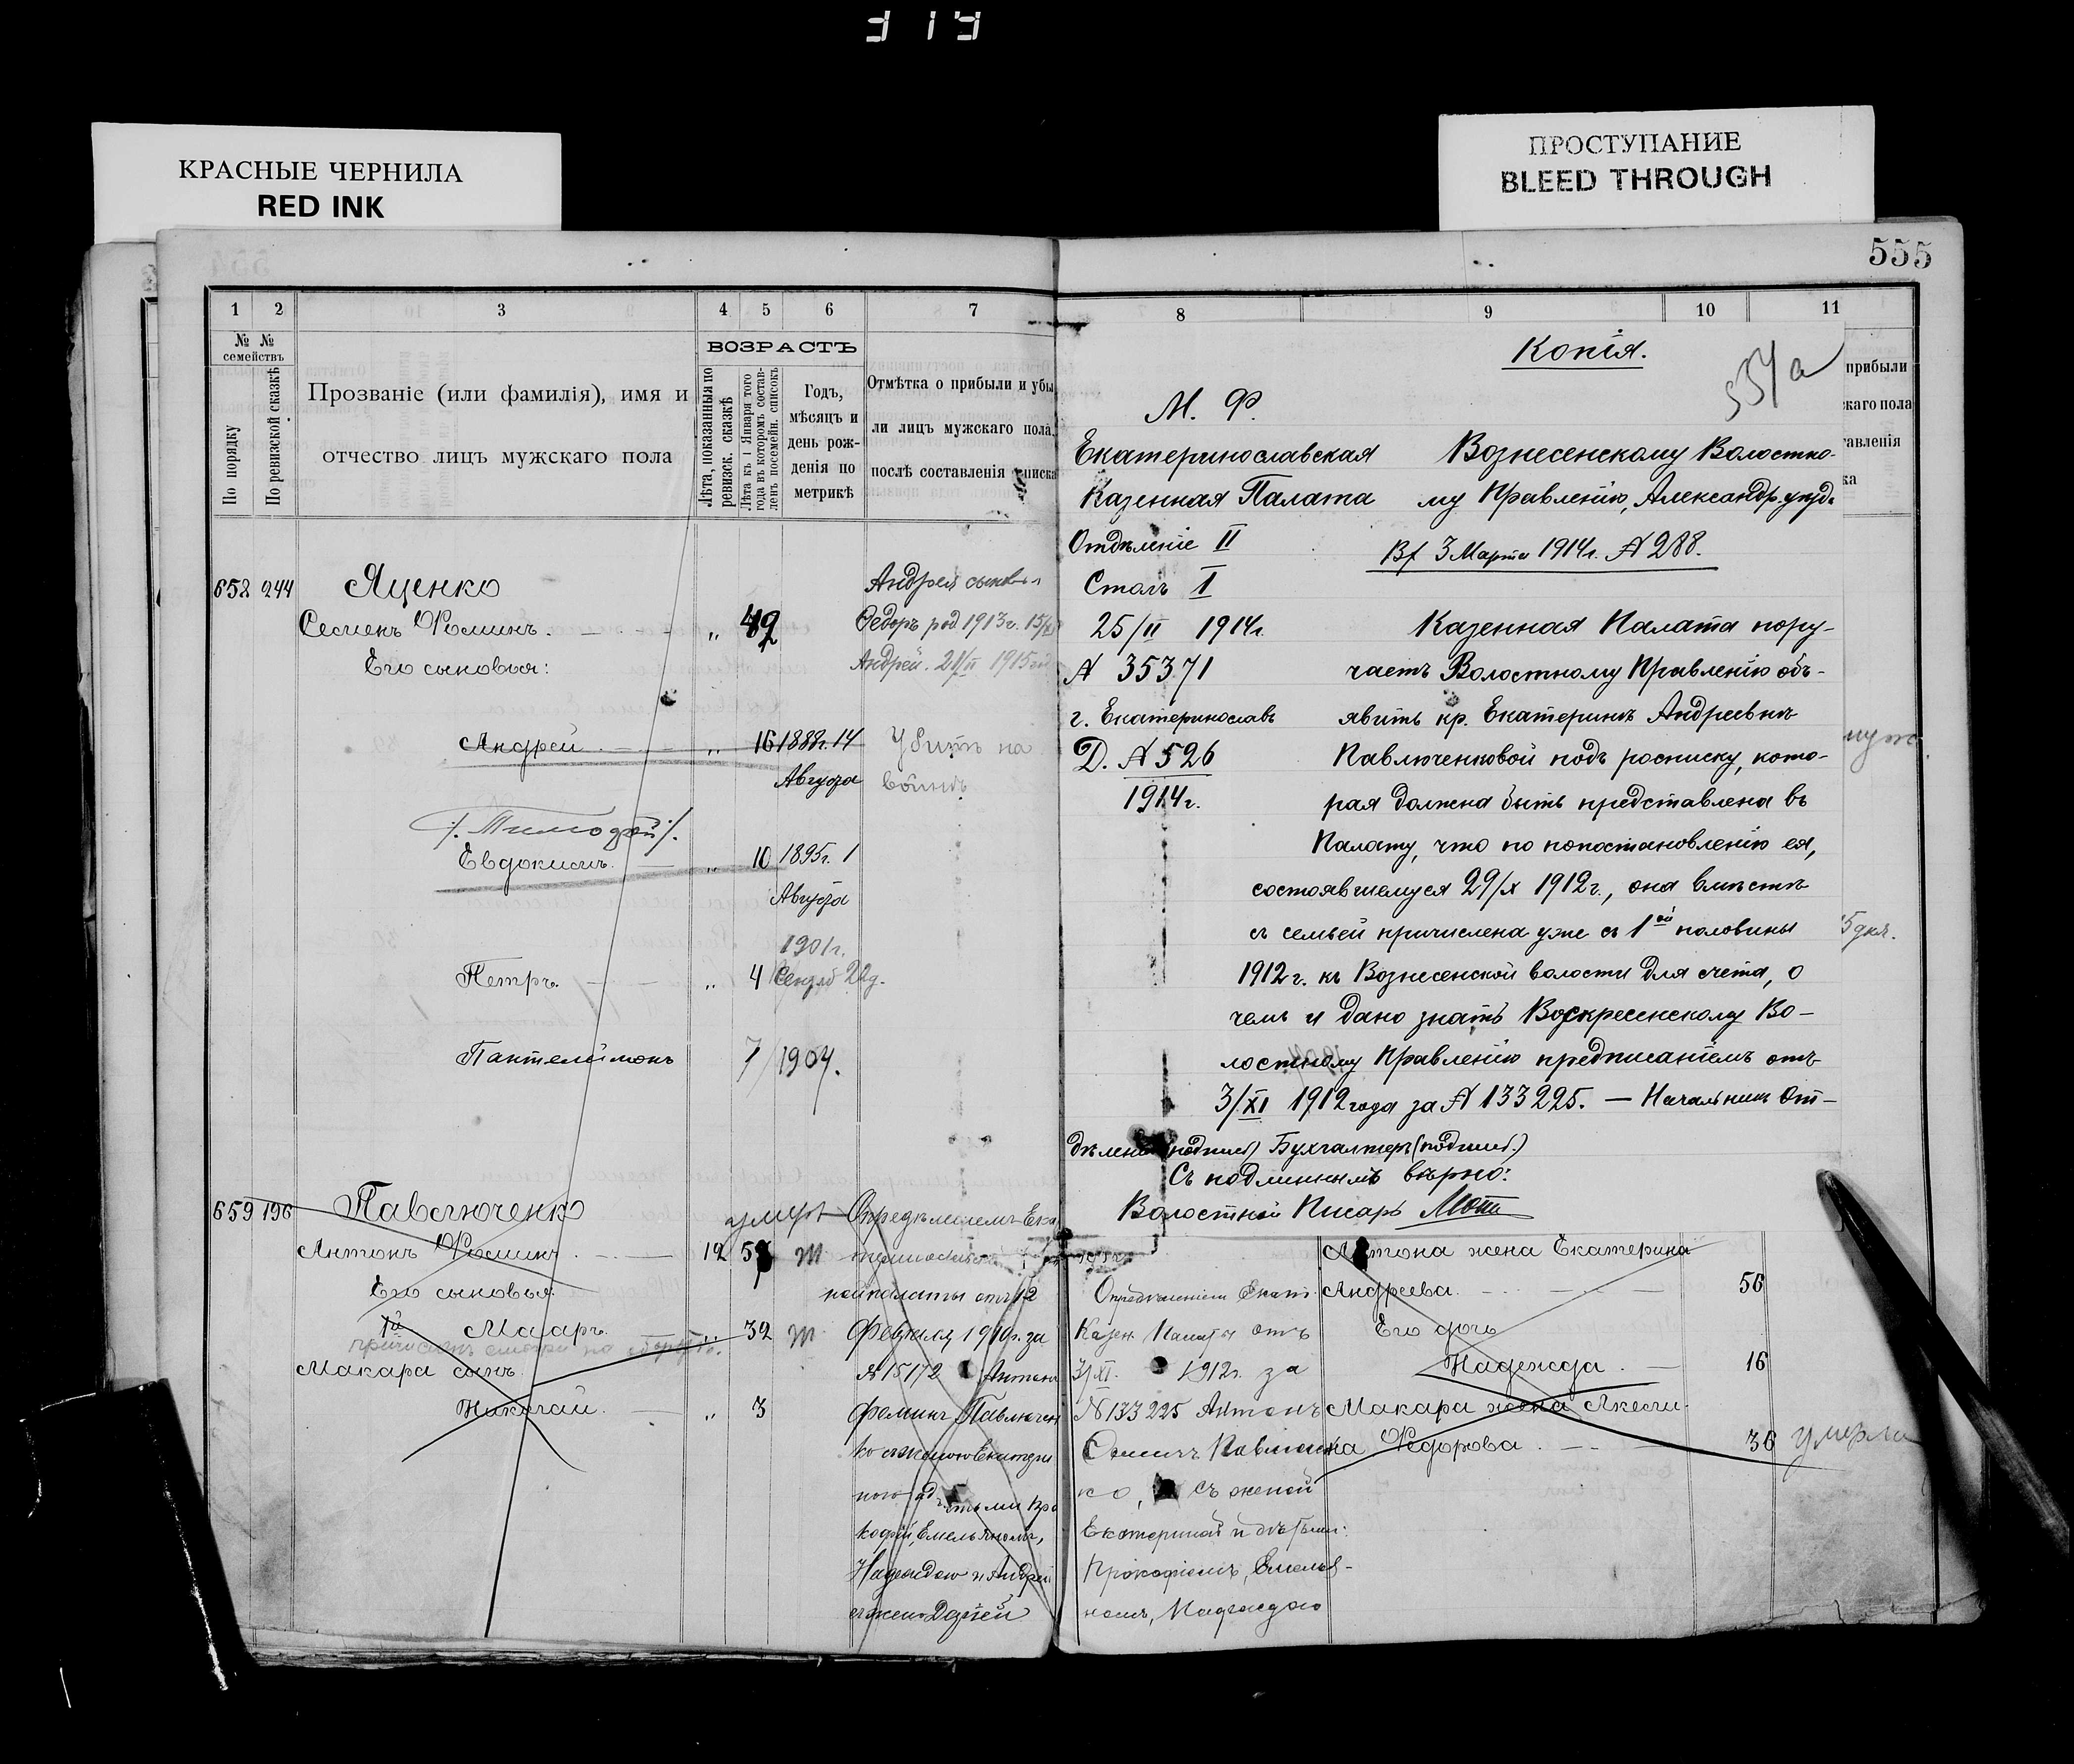 319
КРАСНЫЕ ЧЕРНИЛА
RED INK
ПРОСТУПАНИЕ
BLEED THROUGH
555
1 2 3 4 5 6 7
№ № семействъ
По порядку
По ревизской сказкѣ
Прозваніе (или фамилія), имя и
отчество лицъ мужскаго пола
ВОЗРАСТЪ
Лѣта, показанныя по
ревизск. сказкѣ
Лѣта къ 1 Января того
года въ которомъ состав-
ленъ посемейн. списокъ
Годъ,
мѣсяцъ и
день рож-
денія по
метрикѣ
Отмѣтка о прибыли и убы
ли лицъ мужскаго пола,
послѣ составленія списка
658 244 Яценко
Семенъ Ѳоминъ. „ 49
Его сыновья:
Андрей „ 16 1888г. 14
Августа
Тимофей
Евдокимъ „ 10 1895г. 1
Августа
1901г.
Петръ. „ 4
Пантелеймонъ 7 1904.
Андрея сыновья
Ѳедоръ род 1913г. 15/
Андрей. 21/II 1915
Убитъ на
войнѣ
659 196 Павлюченко
Антонъ Ѳоминъ 12 5
Его сыновья
1й Макаръ „ 32
Макара сынъ
Николай „ 3
умеръ Опредѣленіемъ Ека
ной палаты отъ 12
Февраля 1910г. за
№ 15172 Антонъ
Фоминъ Павлючен
ко съ женою Екатери
ною и дѣтьми Про
кофій, Емельяномъ,
Надеждою и Андрей
8 9 10 11
Копія.
554а
М. Ф.
Екатеринославская
Казенная Палата
Отдѣленіе II
Столъ I
25/II 1914г.
№ 35371
г. Екатеринославъ
Д. № 526
1914г.
Вознесенскому Волостно-
му Правленію, Александр. уѣзд.
Вх 3 Марта 1914г. № 288.
Казенная Палата пору-
чаетъ Волостному Правленію объ-
явить кр. Екатеринѣ Андреевнѣ
Павлюченковой подъ росписку, кото-
рая должна быть представлена въ
Палату, что по попостановленію ея,
состоявшемуся 29/X 1912г., она вмѣстѣ
съ семьей причислена уже съ 1ой половины
1912г. къ Вознесенской волости для счета, о
чемъ и дано знать Воскресенскому Во-
лостному Правленію предписаніемъ отъ
3/XI 1912 года за № 133225. — Начальникъ От-
дѣленія (подпис) Бухгалтеръ (подпис.)
Съ подлиннымъ вѣрно:
Волостной Писарь
прибыли
скаго пола
тавленія
ка
Опредѣленіемъ Екат.
Казен. Палаты отъ
3/XI. 1912г. за
№ 133225 Антонъ
Ѳоминъ Павлючен
ко, съ женой
Екатериной и дѣтьми:
Прокофіемъ, Емелья-
номъ, Надеждою
Антона жена Екатерина
Андреева. 56
Его дочь
Надежда. 16
Макара жена Аксені-
на Ѳедорова 36 умерла